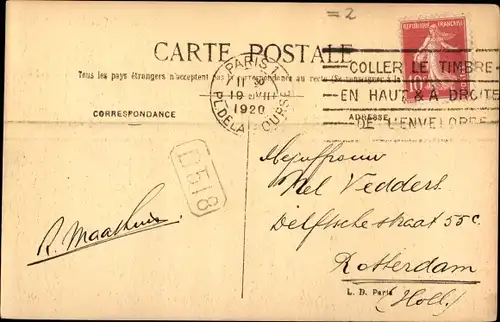 =2
CARTE POSTALE
Tous les pays étrangers n'acceptent pas la correspondance au recto (Se renseigner à la
CORRESPONDANCE
ADRESSE
REPUBLIQUE FRANÇAISE
10
PARIS
1920
PL. DE LA BOURSE
COLLER LE TIMBRE
EN HAUT & A DROITE
DE L'ENVELOPPE
D518
R. Maathuis.
Mejuffrouw
Nel Vedders.
Delftsche straat 55c.
Rotterdam
(Holl.)
L. D. Paris